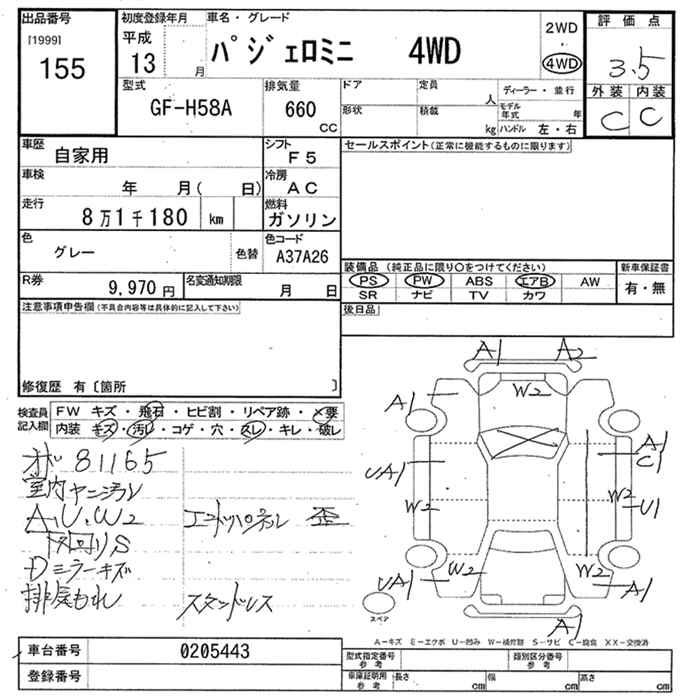 出品番号
[1999]
155
初度登録年月
平成
13 月
車名・グレード
パジェロミニ 4WD
2WD
・
4WD
評価点
3.5
外装 内装
C C
型式
GF-H58A
排気量
660
CC
ドア
定員
人
ディーラー・並行
形状
積載
kg
モデル
年式
年
ハンドル 左・右
車歴
自家用
シフト
F5
セールスポイント(正常に機能するものに限ります)
車検
年 月( 日)
冷房
AC
走行
8万1千180 km
燃料
ガソリン
色
グレー
色替
色コード
A37A26
装備品 (純正品に限り○をつけてください)
新車保証書
PS PW ABS エアB AW
SR ナビ TV カワ
有・無
R券
9,970円
名変通知期限
月 日
注意事項申告欄(不具合内容等は具体的に記入して下さい)
後日品
修復歴 有〔箇所 〕
検査員
記入欄
FW キズ・飛石・ヒビ割・リペア跡・×要
内装 キズ・汚レ・コゲ・穴・スレ・キレ・破レ
81165
室内ヤニ汚レ
A,U,W2
エンドパネル 歪
下回りS
Dミラーキズ
排気もれ
スタッドレス
A1 A2
A1
W2
A1
C1
UA1
W2
W2
U1
W2
W2
UA1
A1
A1
スペア
A-キズ E-エクボ U-凹み W-補修跡 S-サビ C-腐食 XX-交換済
車台番号
0205443
登録番号
型式指定番号
参考
類別区分番号
参考
車庫証明用
参考
長さ
cm
幅
cm
高さ
cm